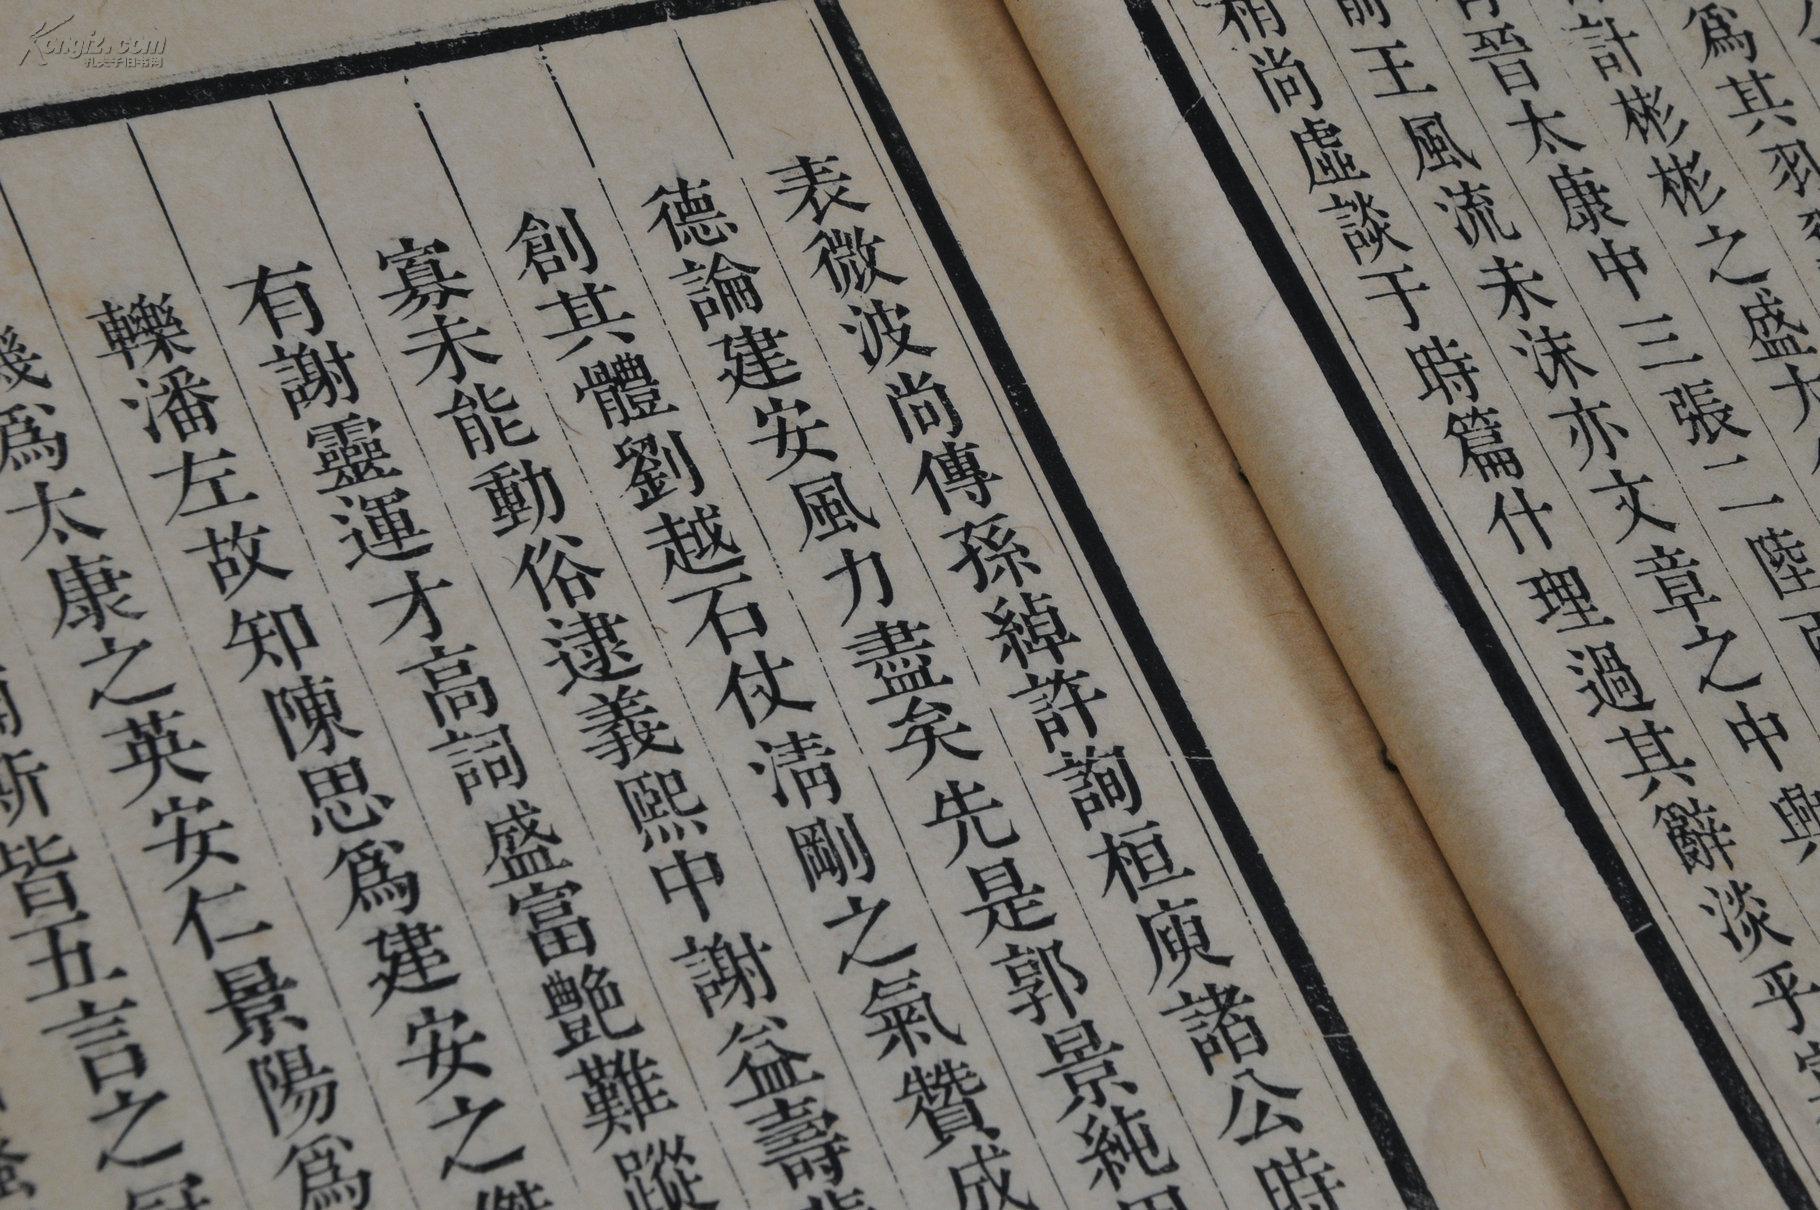 爲其羽
計彬彬之盛大
晉太康中三張二陸
前王風流未沫亦文章之中興
稍尚虛談于時篇什理過其辭淡乎
表微波尚傳孫綽許詢桓庾諸公時
德論建安風力盡矣先是郭景純用
創其體劉越石仗清剛之氣贊成
寡未能動俗逮義熙中謝益壽
有謝靈運才高詞盛富艷難蹤
轢潘左故知陳思爲建安之傑
幾爲太康之英安仁景陽爲
斯皆五言之冠
Kongfz.com
孔夫子旧书网